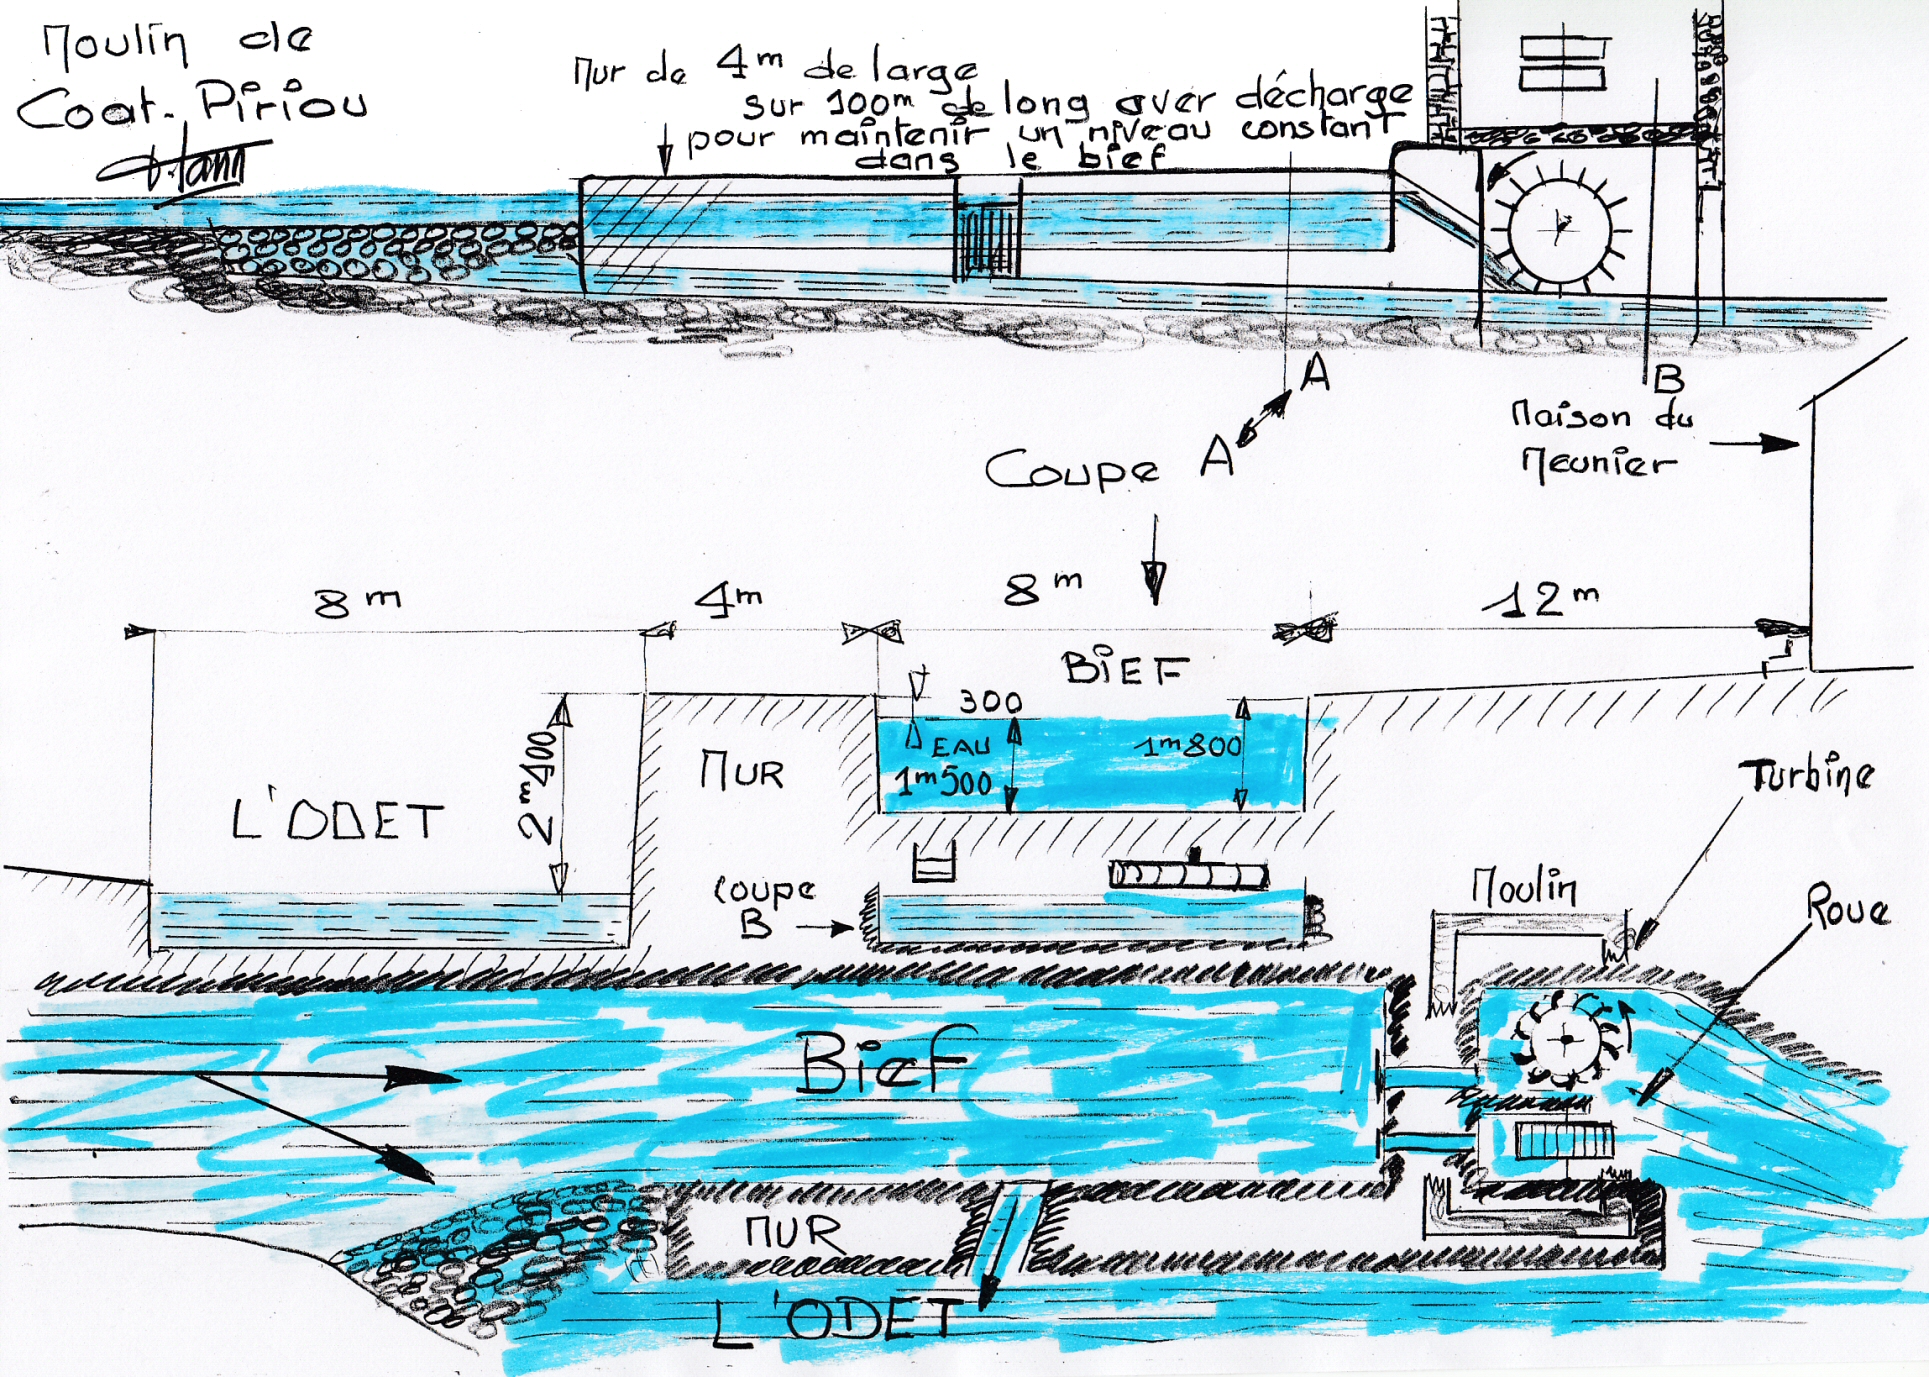 Moulin de
Coat-Piriou
Mur de 4m de large
sur 100m de long aver décharge
pour maintenir un niveau constant
dans le bief
A
B
Coupe A
Maison du
Meunier
8m
4m
8m
12m
BiEF
300
EAU
1m500
1m800
2m400
L'ODET
MUR
Turbine
coupe
B
Moulin
Roue
Bief
MUR
L'ODET